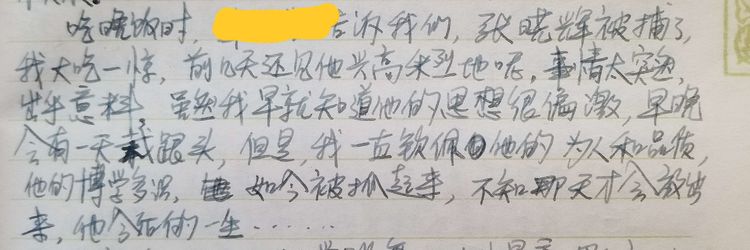 吃晚饭时, 告诉我们, 张晓辉被捕了,
我大吃一惊, 前几天还见他兴高采烈地呢, 事情太突然,
出乎意料, 虽然我早就知道他的思想很偏激, 早晚
会有一天栽跟头, 但是, 我一直钦佩他的为人和品质,
他的博学多识, 如今被抓起来, 不知那天才会放出
来, 他今后的一生······